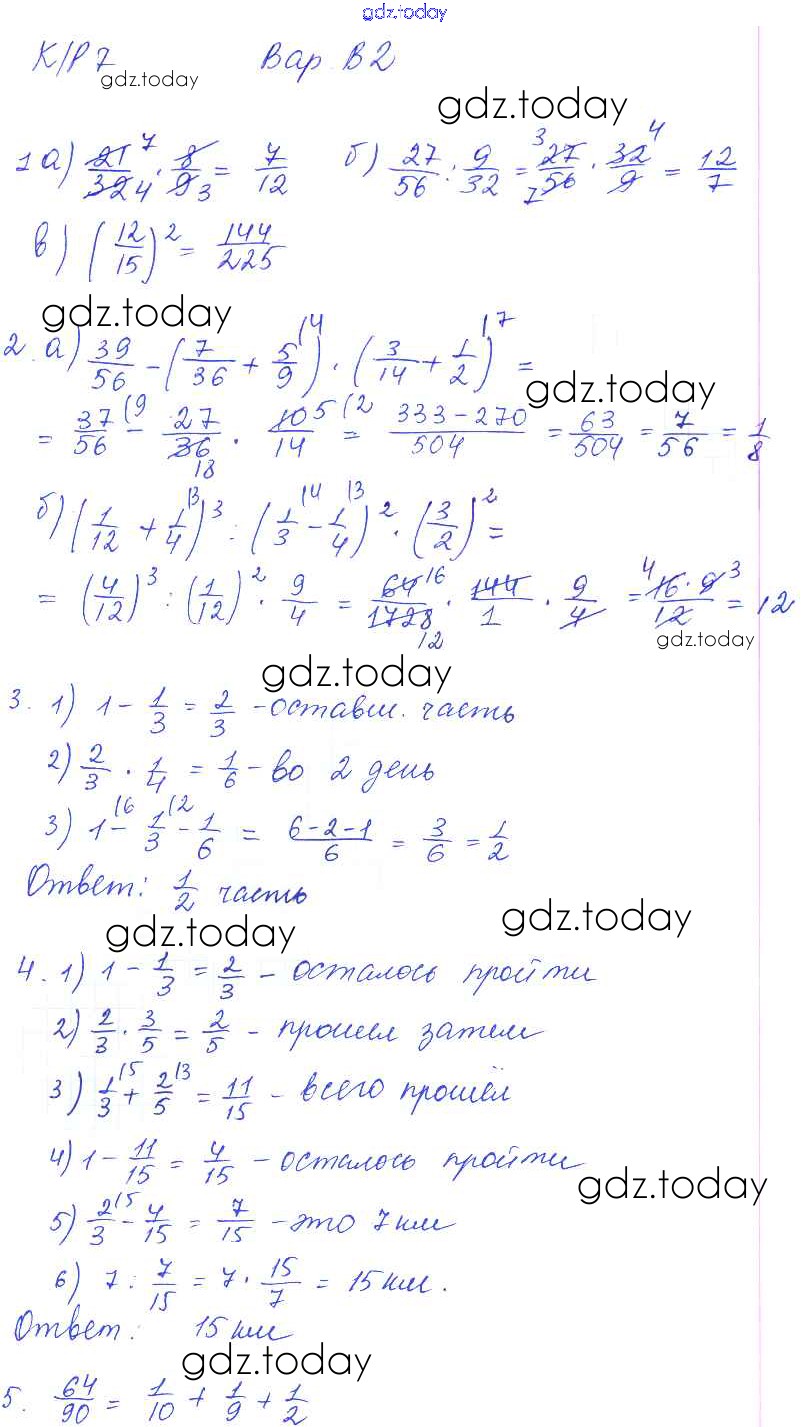 gdz.today
К/Р 7 Вар. В2
gdz.today
gdz.today
1 а) 21/32 · 8/9 = 7/12 б) 27/56 : 9/32 = 27/56 · 32/9 = 12/7
в) (12/15)² = 144/225
gdz.today
2. а) 39/56 - (7/36 + 5/9) · (3/14 + 1/2) =
gdz.today
= 37/56 - 27/36 · 10/14 = (333-270)/504 = 63/504 = 7/56 = 1/8
б) (1/12 + 1/4)³ : (1/3 - 1/4)² · (3/2)² =
= (4/12)³ : (1/12)² · 9/4 = 64/1728 · 144/1 · 9/4 = (16·9)/12 = 12
gdz.today
gdz.today
3. 1) 1 - 1/3 = 2/3 - оставш. часть
2) 2/3 · 1/4 = 1/6 - во 2 день
3) 1 - 1/3 - 1/6 = (6-2-1)/6 = 3/6 = 1/2
Ответ: 1/2 часть
gdz.today
gdz.today
4. 1) 1 - 1/3 = 2/3 - осталось пройти
2) 2/3 · 3/5 = 2/5 - прошел затем
3) 1/3 + 2/5 = 11/15 - всего прошёл
4) 1 - 11/15 = 4/15 - осталось пройти
gdz.today
5) 2/3 - 4/15 = 7/15 - это 7 км
6) 7 : 7/15 = 7 · 15/7 = 15 км.
Ответ: 15 км
gdz.today
5. 64/90 = 1/10 + 1/9 + 1/2